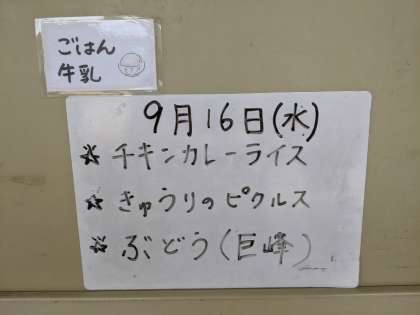 ごはん
牛乳
9月16日(水)
☆チキンカレーライス
☆きゅうりのピクルス
☆ぶどう(巨峰)